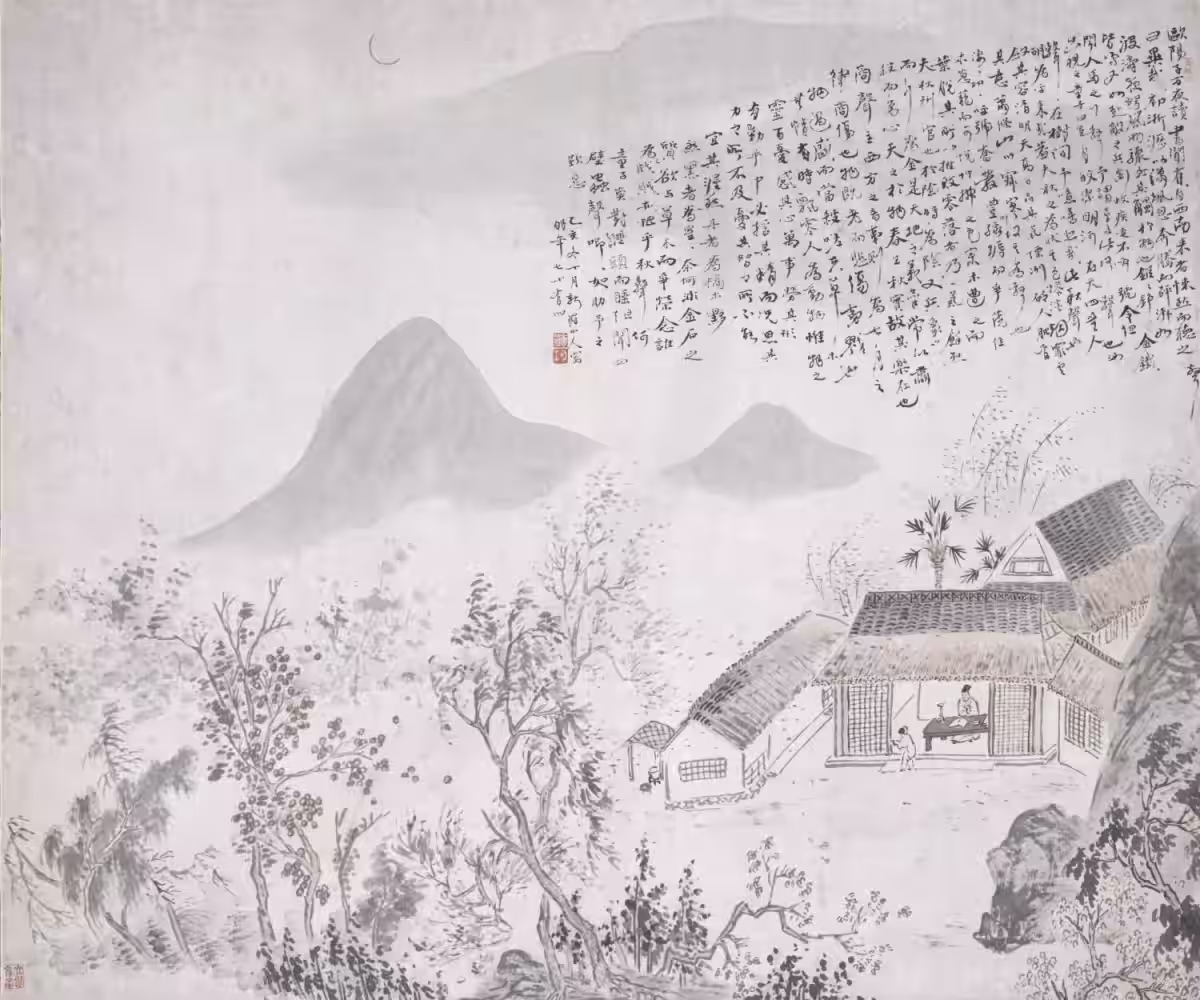 歐陽子方夜讀書聞有自西南來者悚然而聽之
曰異哉初淅瀝以蕭颯忽奔騰而砰湃如
波濤夜驚風雨驟至其觸於物也鏦鏦錚錚金鐵
皆鳴又如赴敵之兵銜枚疾走不聞號令但
聞人馬之行聲予謂童子此何聲也汝
出視之童子曰星月皎潔明河在天四無人
聲聲在樹間予曰噫嘻悲哉此秋聲也
胡為乎來哉蓋夫秋之為狀也其色慘淡煙霏雲
斂其容清明天高日晶其氣慄冽砭人肌骨
其意蕭條山川寂寥故其為聲也
淒淒切切呼號奮發豐草綠縟而爭茂佳
木蔥蘢而可悅草拂之色變木遭之而
葉脫其所以摧敗零落者乃一氣之餘烈
夫秋刑官也於時為陰又兵象也
於行為金是天地之義氣常以肅
殺而為心天之於物春生秋實故其樂在也
商聲主西方之音夷則為七月之
律商傷也物既老而悲傷夷戮也
物過盛而當殺嗟夫草木
無情有時飄零人為動物惟物之
靈百憂感其心萬事勞其形
有動乎中必搖其精而況思其
力之所不及憂其智之所不能
宜其渥然丹者為槁木黟
然黑者為星星奈何非金石之
質欲與草木而爭榮念誰
為戕賊亦恨乎秋聲
童子莫對垂頭而睡但聞四
壁蟲聲唧唧如助予之
歎息
乙亥冬十月新羅山人寫
時年七十有四